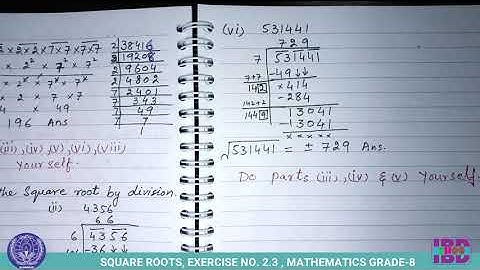 2×2×2×7×7×7×7
× 2² × 7² × 7²
2 × 2 × 7 × 7
4 × 49
196 Ans
2 38416
2 19208
2 9604
2 4802
7 2401
7 343
7 49
7 7
1
(iii), (iv), (v), (vi), (viii)
Yourself.
the Square root by division.
(ii) 4356
6 6
6 4356
-36↓↓
(vi) 531441
729
7 531441
7+7 -49↓↓
142 ×414
142+2 -284
1449 13041
-13041
× × × × ×
√531441 = ± 729 Ans.
Do parts (iii), (iv) & (v) Yourself.
IBD
SQUARE ROOTS, EXERCISE NO. 2.3 , MATHEMATICS GRADE-8